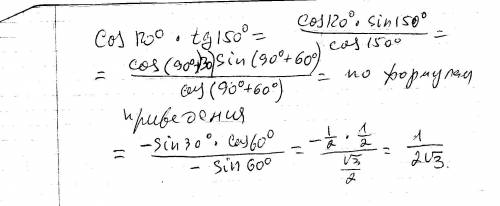 cos 120° · tg 150° = cos 120° · sin 150° / cos 150° =
= cos(90°+30°) sin(90°+60°) / cos(90°+60°) = по формулам
приведения
= -sin 30° · cos 60° / - sin 60° = -1/2 · 1/2 / √3/2 = 1 / 2√3.